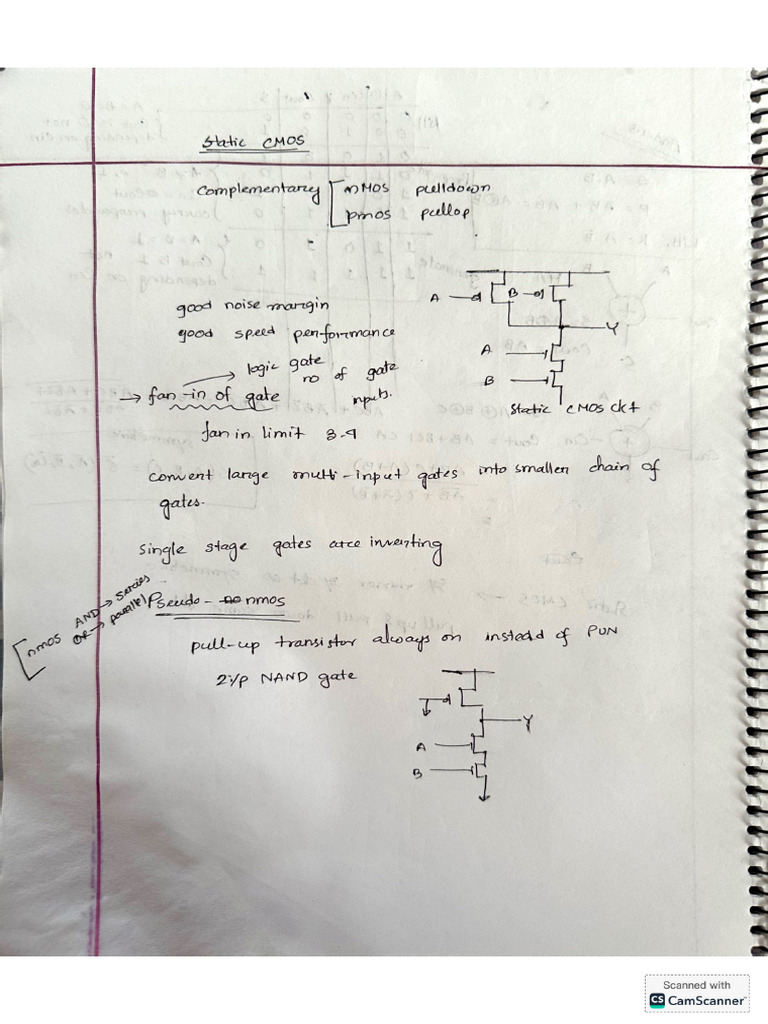 Static CMOS
Complementary [ nMOS pulldown
pmos pullop
good noise margin
good speed performance
A
B
Y
A
B
Static CMOS ckt
→ logic gate
no of gate
inputs.
→ fan-in of gate
fan in limit 3-4
convert large multi-input gates into smaller chain of
gates.
single stage gates are inverting
[ nmos AND → Series
OR → parallel
Pseudo- nmos
pull-up transistor always on instead of PUN
2i/p NAND gate
Y
A
B
Scanned with
CS CamScanner